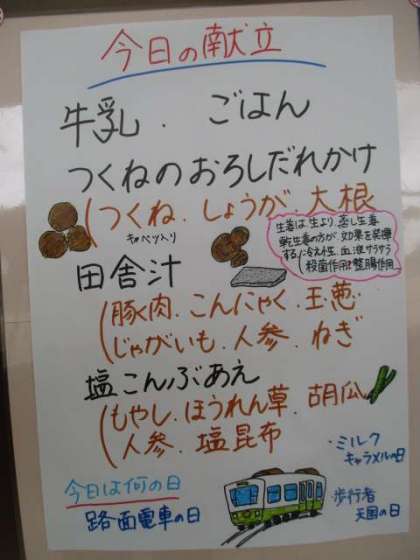 今日の献立
牛乳．ごはん
つくねのおろしだれかけ
(つくね．しょうが．大根
キャベツ入り
生姜は生より、蒸し生姜
乾生姜の方が効果を発揮
する!冷え性、血液サラサラ
殺菌作用、整腸作用
田舎汁
(豚肉．こんにゃく．玉葱
じゃがいも．人参．ねぎ
塩こんぶあえ
(もやし．ほうれん草．胡瓜
人参．塩昆布
今日は何の日
路面電車の日
・ミルク
キャラメルの日
・歩行者
天国の日